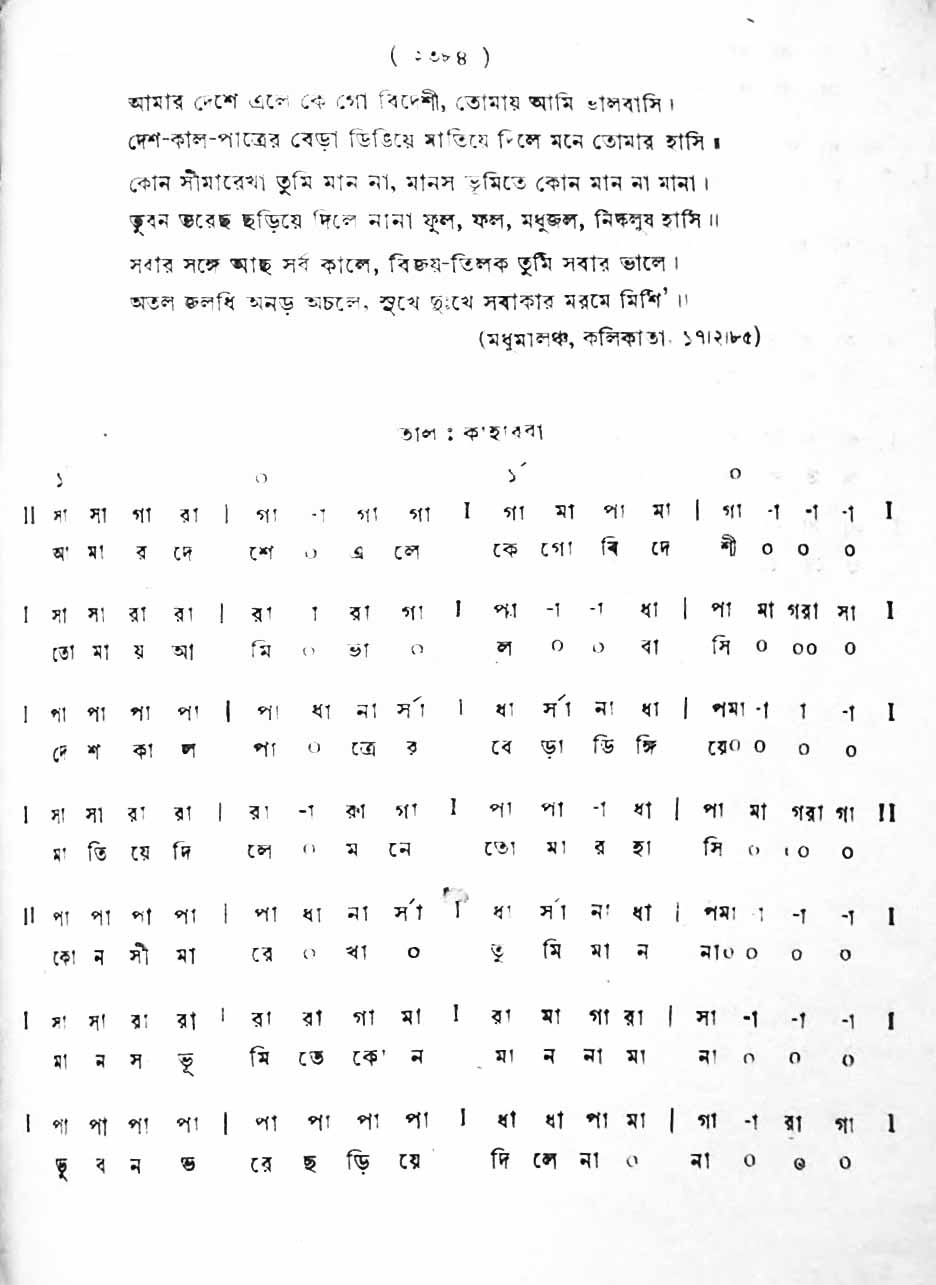 ( ২৩৮৪ )
আমার দেশে এলে কে গো বিদেশী, তোমায় আমি ভালবাসি।
দেশ-কাল-পাত্রের বেড়া ডিঙিয়ে মাতিয়ে দিলে মনে তোমার হাসি॥
কোন সীমারেখা তুমি মান না, মানস ভূমিতে কোন মান না মানা।
ভুবন ভরেছ ছড়িয়ে দিলে নানা ফুল, ফল, মধুজল, নিষ্কলুষ হাসি॥
সবার সঙ্গে আছ সর্ব কালে, বিজয়-তিলক তুমি সবার ভালে।
অতল জলধি অনড় অচলে, সুখে দুঃখে সবাকার মরমে মিশি'॥
(মধুমালঞ্চ, কলিকাতা, ১৭।২।৮৫)
তাল : কাহারবা
১ ০ ১́ ০
II সা সা গা রা | গা -া গা গা I গা মা পা মা | গা -া -া -া I
আ মা র দে শে ০ এ লে কে গো বি দে শী ০ ০ ০
I সা সা রা রা | রা া রা গা I পা -া -া ধা | পা মা গরা সা I
তো মা য় আ মি ০ ভা ০ ল ০ ০ বা সি ০ ০০ ০
I পা পা পা পা | পা ধা না র্সা I ধা র্সা না ধা | পমা -া া -া I
দে শ কা ল পা ০ ত্রে র বে ড়া ডি ঙ্গি য়ে০ ০ ০ ০
I সা সা রা রা | রা -া রা গা I পা পা -া ধা | পা মা গরা গা II
মা তি য়ে দি লে ০ ম নে তো মা র হা সি ০ ০০ ০
II পা পা পা পা | পা ধা না র্সা I ধা র্সা না ধা | পমা া -া -া I
কো ন সী মা রে ০ খা ০ তু মি মা ন না০ ০ ০ ০
I সা সা রা রা | রা রা গা মা I রা মা গা রা | সা -া -া -া I
মা ন স ভূ মি তে কো ন মা ন না মা না ০ ০ ০
I পা পা পা পা | পা পা পা পা I ধা ধা পা মা | গা -া রা গা I
ভু ব ন ভ রে ছ ড়ি য়ে দি লে না ০ না ০ ০ ০